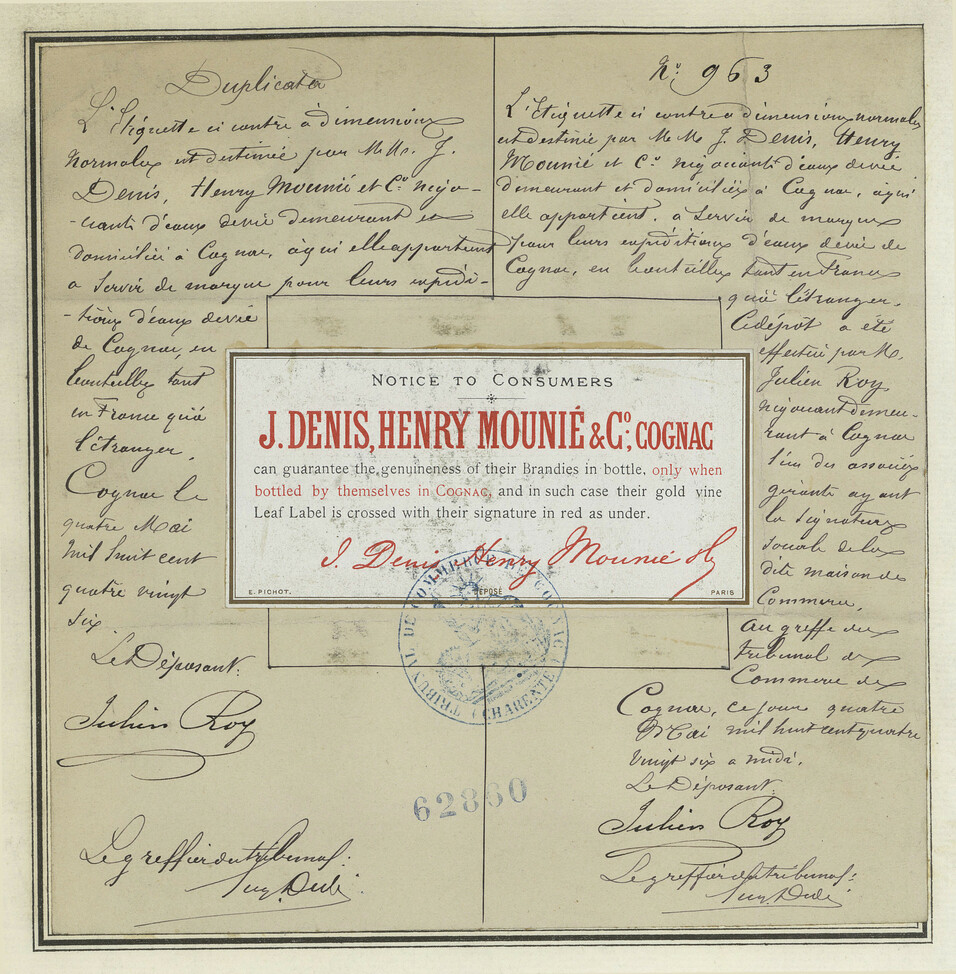 Duplicata
L'Etiquette ci contre à dimensions
normales est destinée par MM. J.
Denis, Henry Mounié et Cº négo-
-ciants d'eaux de vie demeurant et
domiciliés à Cognac, à qui elle appartient
a servir de marque pour leurs expédi-
-tions d'eaux de vie
de Cognac, en
bouteilles tant
en France qu'à
l'étranger.
Cognac le
quatre Mai
mil huit cent
quatre vingt
six.
Le Déposant:
Julien Roy
Le greffier du tribunal:
Nº 963
L'Etiquette ci contre a dimensions normales
est destinée par MM. J. Denis, Henry
Mounié et Cº négociants d'eaux de vie
demeurant et domiciliés à Cognac, à qui
elle appartient. a servir de marque
pour leurs expéditions d'eaux de vie de
Cognac, en bouteilles tant en France
qu'à l'étranger.
Ce dépôt a été
effectué par M.
Julien Roy
négociant demeu-
rant à Cognac
l'un des associés
gérants ayant
la signature
sociale de la
dite maison de
Commerce.
Au greffe du
tribunal de
Commerce de
Cognac, ce jour quatre
Mai mil huit cent quatre
vingt six a midi.
Le Déposant:
Julien Roy
Le greffier du tribunal:
NOTICE TO CONSUMERS
J. DENIS, HENRY MOUNIÉ & Cº; COGNAC
can guarantee the genuineness of their Brandies in bottle, only when
bottled by themselves in COGNAC, and in such case their gold vine
Leaf Label is crossed with their signature in red as under.
J. Denis Henry Mounié & Cº
E. PICHOT.
DÉPOSÉ
PARIS
TRIBUNAL DE COMMERCE DE COGNAC (CHARENTE)
62860